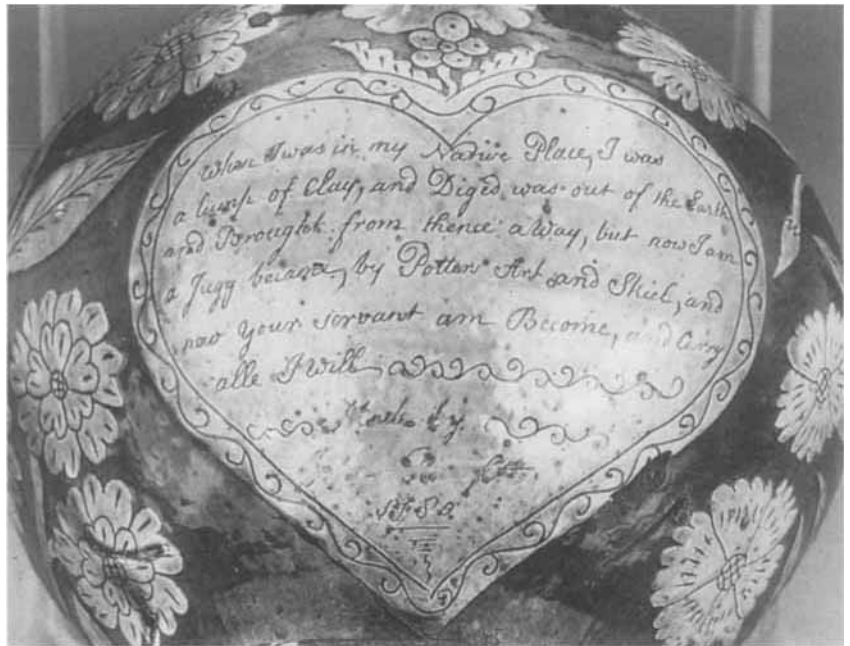 When I was in my Native Place, I was
a lump of Clay, and Diged was out of the Earth
and Brought from thence away, but now I am
a Jugg became, by Potters Art and Skiel, and
now your servant am Become, and Carry
alle I will
by